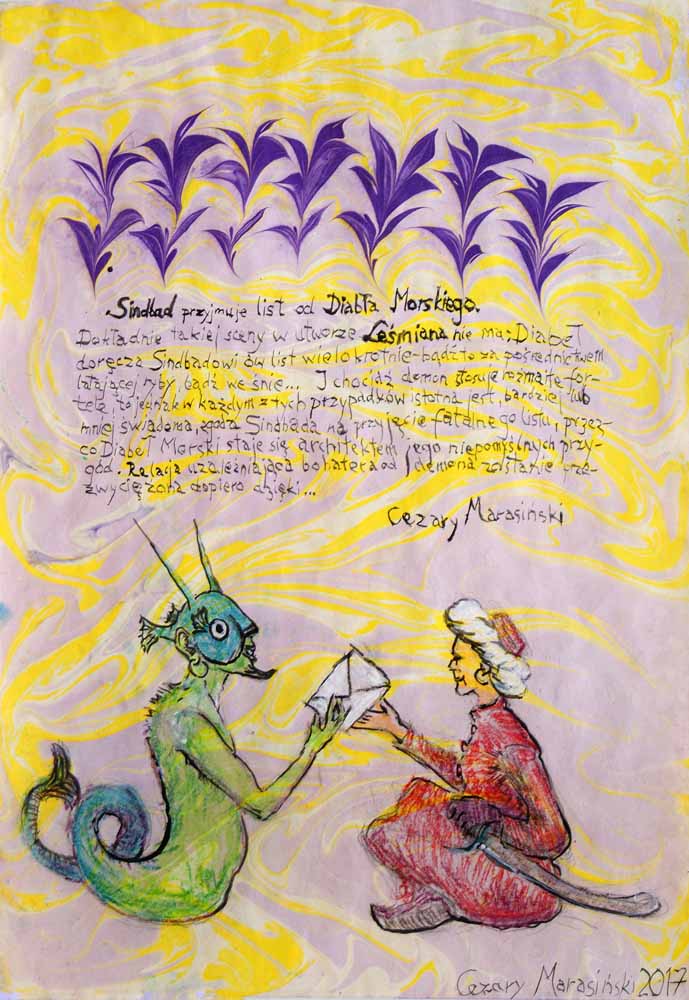 Sindbad przyjmuje list od Diabła Morskiego.
Dokładnie takiej sceny w utworze Leśmiana nie ma; Diabeł
doręcza Sindbadowi ów list wielokrotnie - bądź to za pośrednictwem
latającej ryby, bądź we śnie... I chociaż demon stosuje rozmaite for-
tele, to jednak w każdym z tych przypadków istotna jest, bardziej lub
mniej świadoma, zgoda Sindbada na przyjęcie fatalnego listu, przez-
co Diabeł Morski staje się architektem jego niepomyślnych przy-
gód. Relacja uzależniająca bohatera od demona zostanie prze-
zwyciężona dopiero dzięki...
Cezary Marasiński
Cezary Marasiński 2017